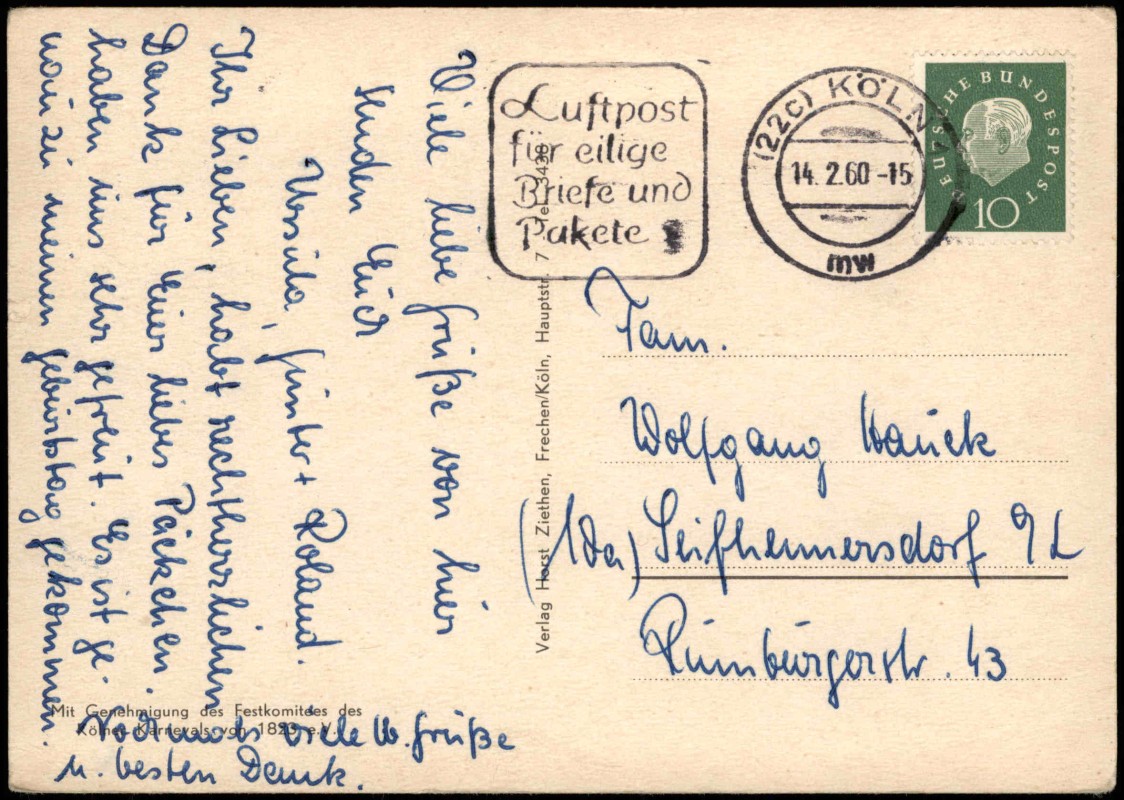 Viele liebe Grüße von hier
senden Euch
Ursula, Günter + Roland.
Ihr Lieben, habt recht herzlichen
Dank für Euer liebes Päckchen.
haben uns sehr gefreut. Es ist ge-
nau zu meinen Geburtstag gekommen.
Nochmals viele lb. Grüße
u. besten Dank.
Mit Genehmigung des Festkomitees des
Kölner Karnevals von 1823 e.V.
Verlag Horst Ziethen, Frechen/Köln, Hauptstr. 7 Tel. 3438
Luftpost
für eilige
Briefe und
Pakete
(22c) KÖLN 7
14. 2.60 -15
mw
DEUTSCHE BUNDESPOST
10
Fam.
Wolfgang Hauck
(10a) Seifhennersdorf O/L
Rumburgerstr. 43